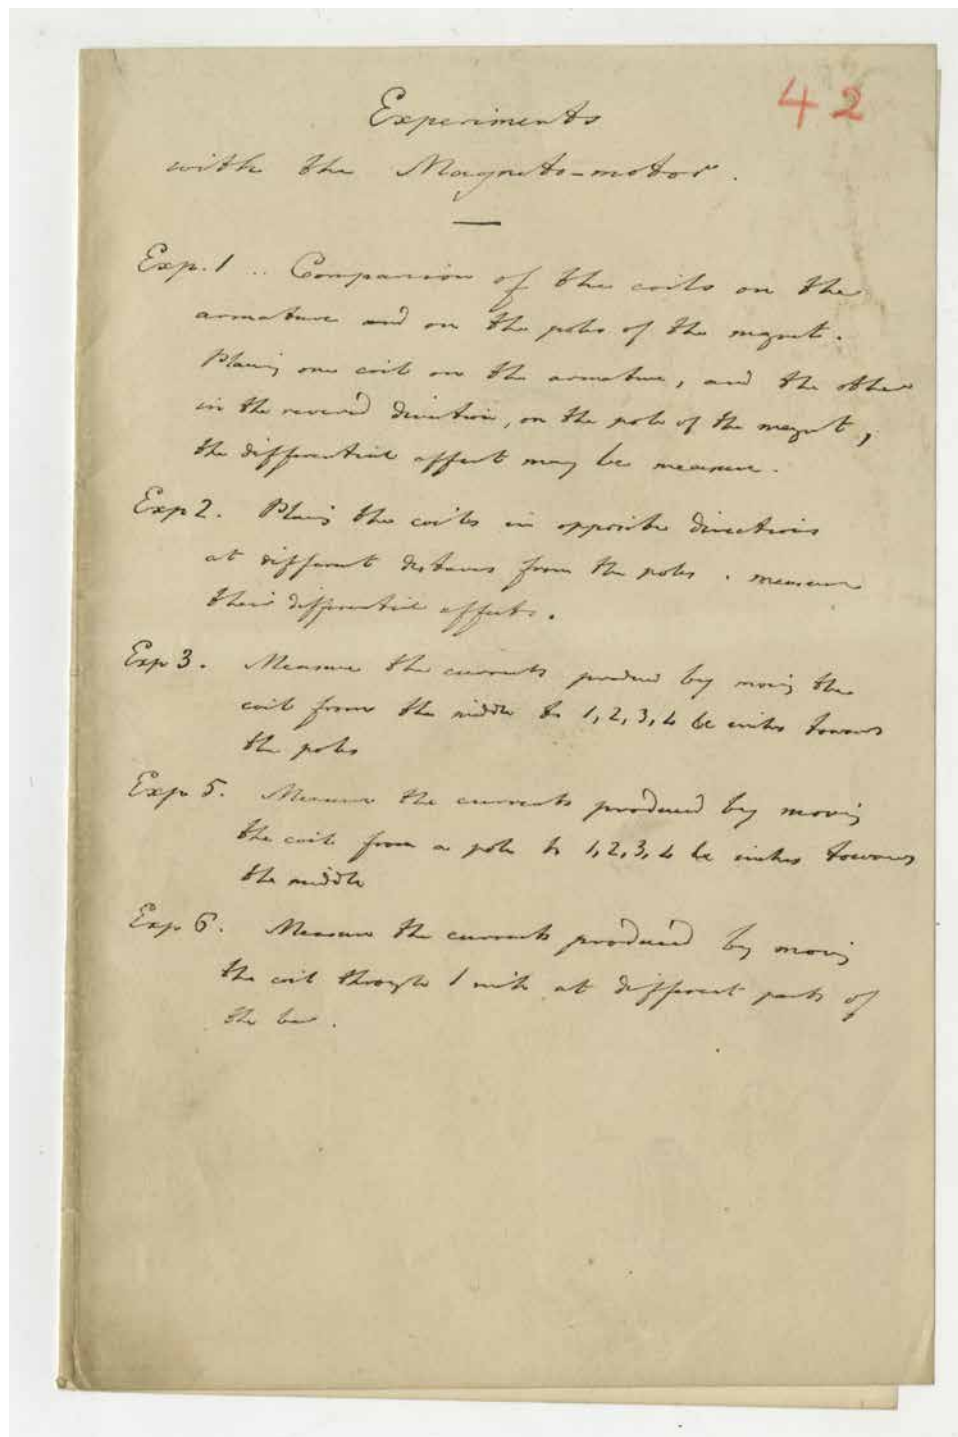 42
Experiments
with the Magneto-motor.
Exp. 1 .. Comparison of the coils on the
armature and on the poles of the magnet.
Placing one coil on the armature, and the other
in the reversed direction, on the pole of the magnet,
the differential effect may be measure.
Exp 2. Placing the coils in opposite directions
at different distances from the poles . measure
their differential effects.
Exp 3. Measure the currents produced by moving the
coil from the middle to 1, 2, 3, 4 &c inches towards
the poles
Exp 5. Measure the currents produced by moving
the coil from a pole to 1, 2, 3, 4 &c inches towards
the middle
Exp 6. Measure the currents produced by moving
the coil through 1 inch at different parts of
the bar.